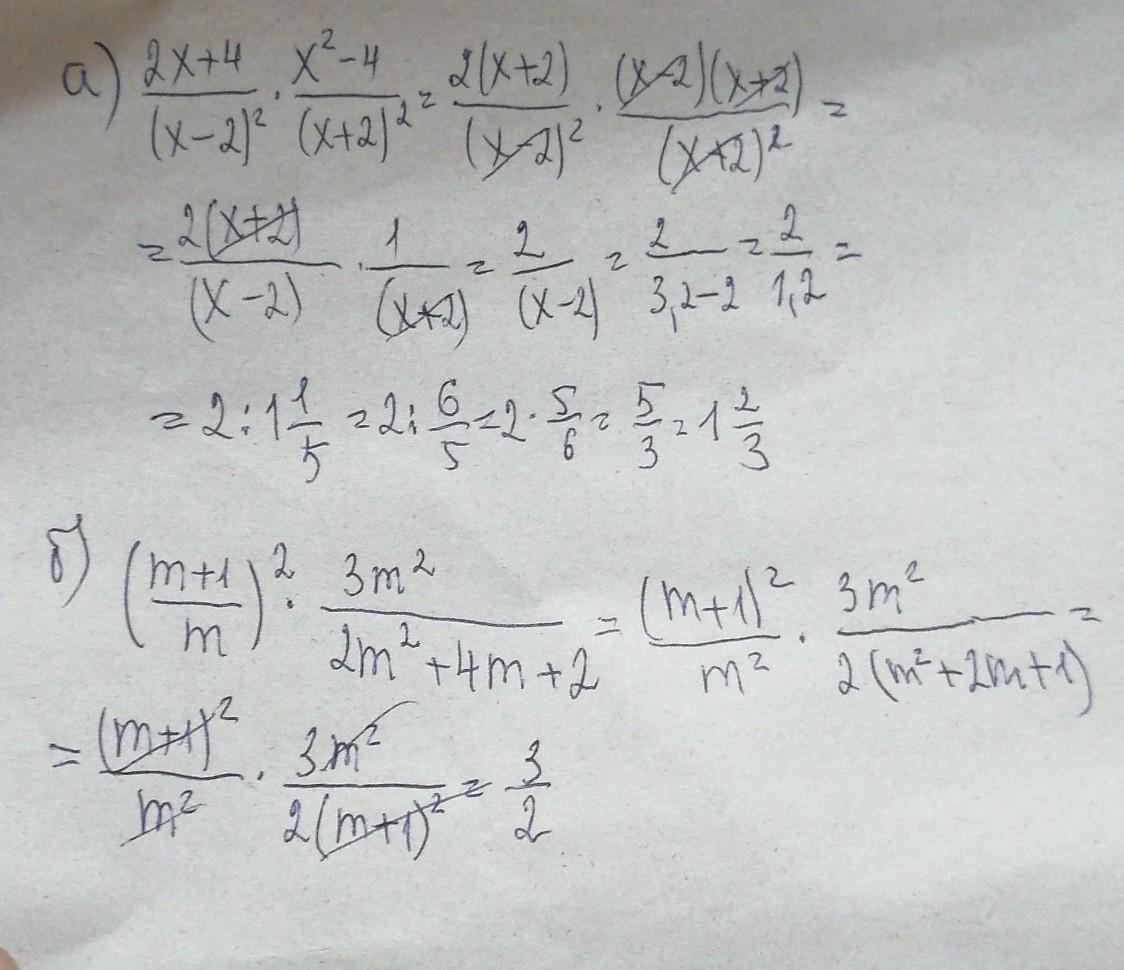 а) (2x+4)/(x-2)² · (x²-4)/(x+2)² = 2(x+2)/(x-2)² · (x-2)(x+2)/(x+2)² =
= 2(x+2)/(x-2) · 1/(x+2) = 2/(x-2) = 2/(3,2-2) = 2/1,2 =
= 2 : 1 1/5 = 2 : 6/5 = 2 · 5/6 = 5/3 = 1 2/3
б) ((m+1)/m)² · 3m²/(2m²+4m+2) = (m+1)²/m² · 3m²/(2(m²+2m+1)) =
= (m+1)²/m² · 3m²/(2(m+1)²) = 3/2